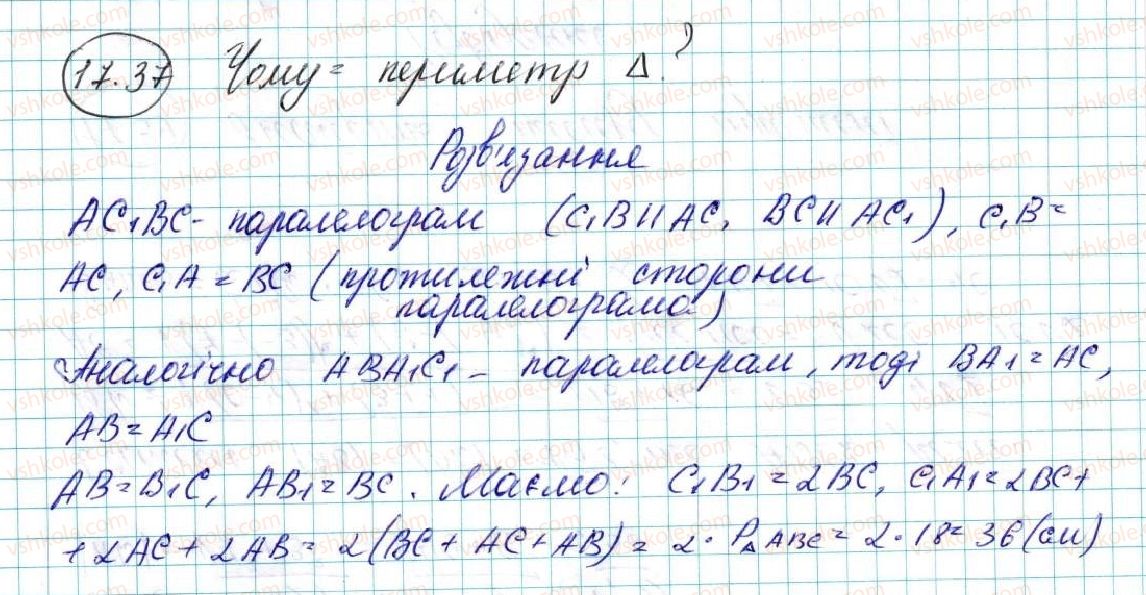 17.37 Чому = периметр Δ?
Розв'язання
AC₁BC - паралелограм (C₁B || AC, BC || AC₁), C₁B =
AC, C₁A = BC (протилежні сторони
паралелограма)
Аналогічно ABA₁C₁ - паралелограм, тоді BA₁ = AC,
AB = A₁C
AB = B₁C, AB₁ = BC. Маємо: C₁B₁ = 2BC, C₁A₁ = 2BC +
+ 2AC + 2AB = 2(BC + AC + AB) = 2 · P△ABC = 2 · 18 = 36 (см)